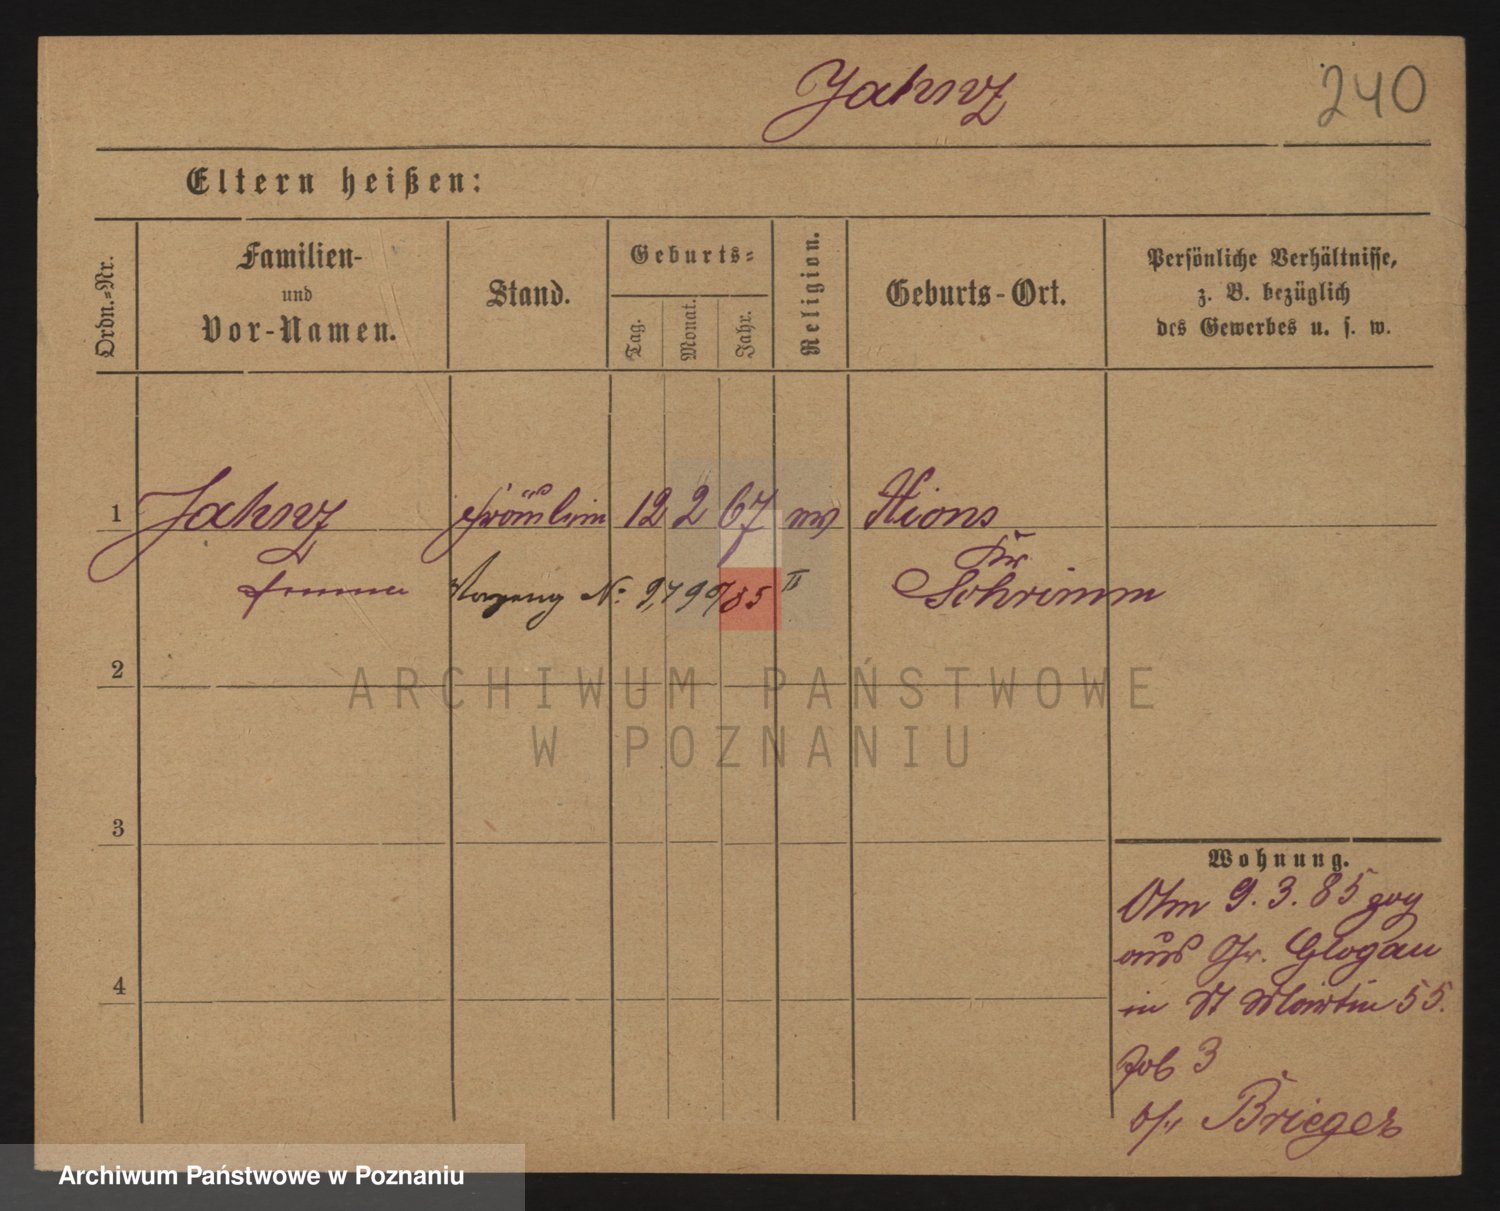 Jahnz
240
Eltern heißen:
Ordn.-Nr.
Familien-
und
Vor-Namen.
Stand.
Geburts-
Tag.
Monat.
Jahr.
Religion.
Geburts-Ort.
Persönliche Verhältnisse,
z. B. bezüglich
des Gewerbes u. s. w.
1 Jahnz Fräulein 12 2 67 ev Xions
Kr.
Emma Vorgang No: 2,799/85 II Schrimm
2
ARCHIWUM PAŃSTWOWE
W POZNANIU
3
Wohnung.
Am 9.3.85 zog
aus Gr. Glogau
in St Martin 55.
3
b/ Brieger
4
Archiwum Państwowe w Poznaniu